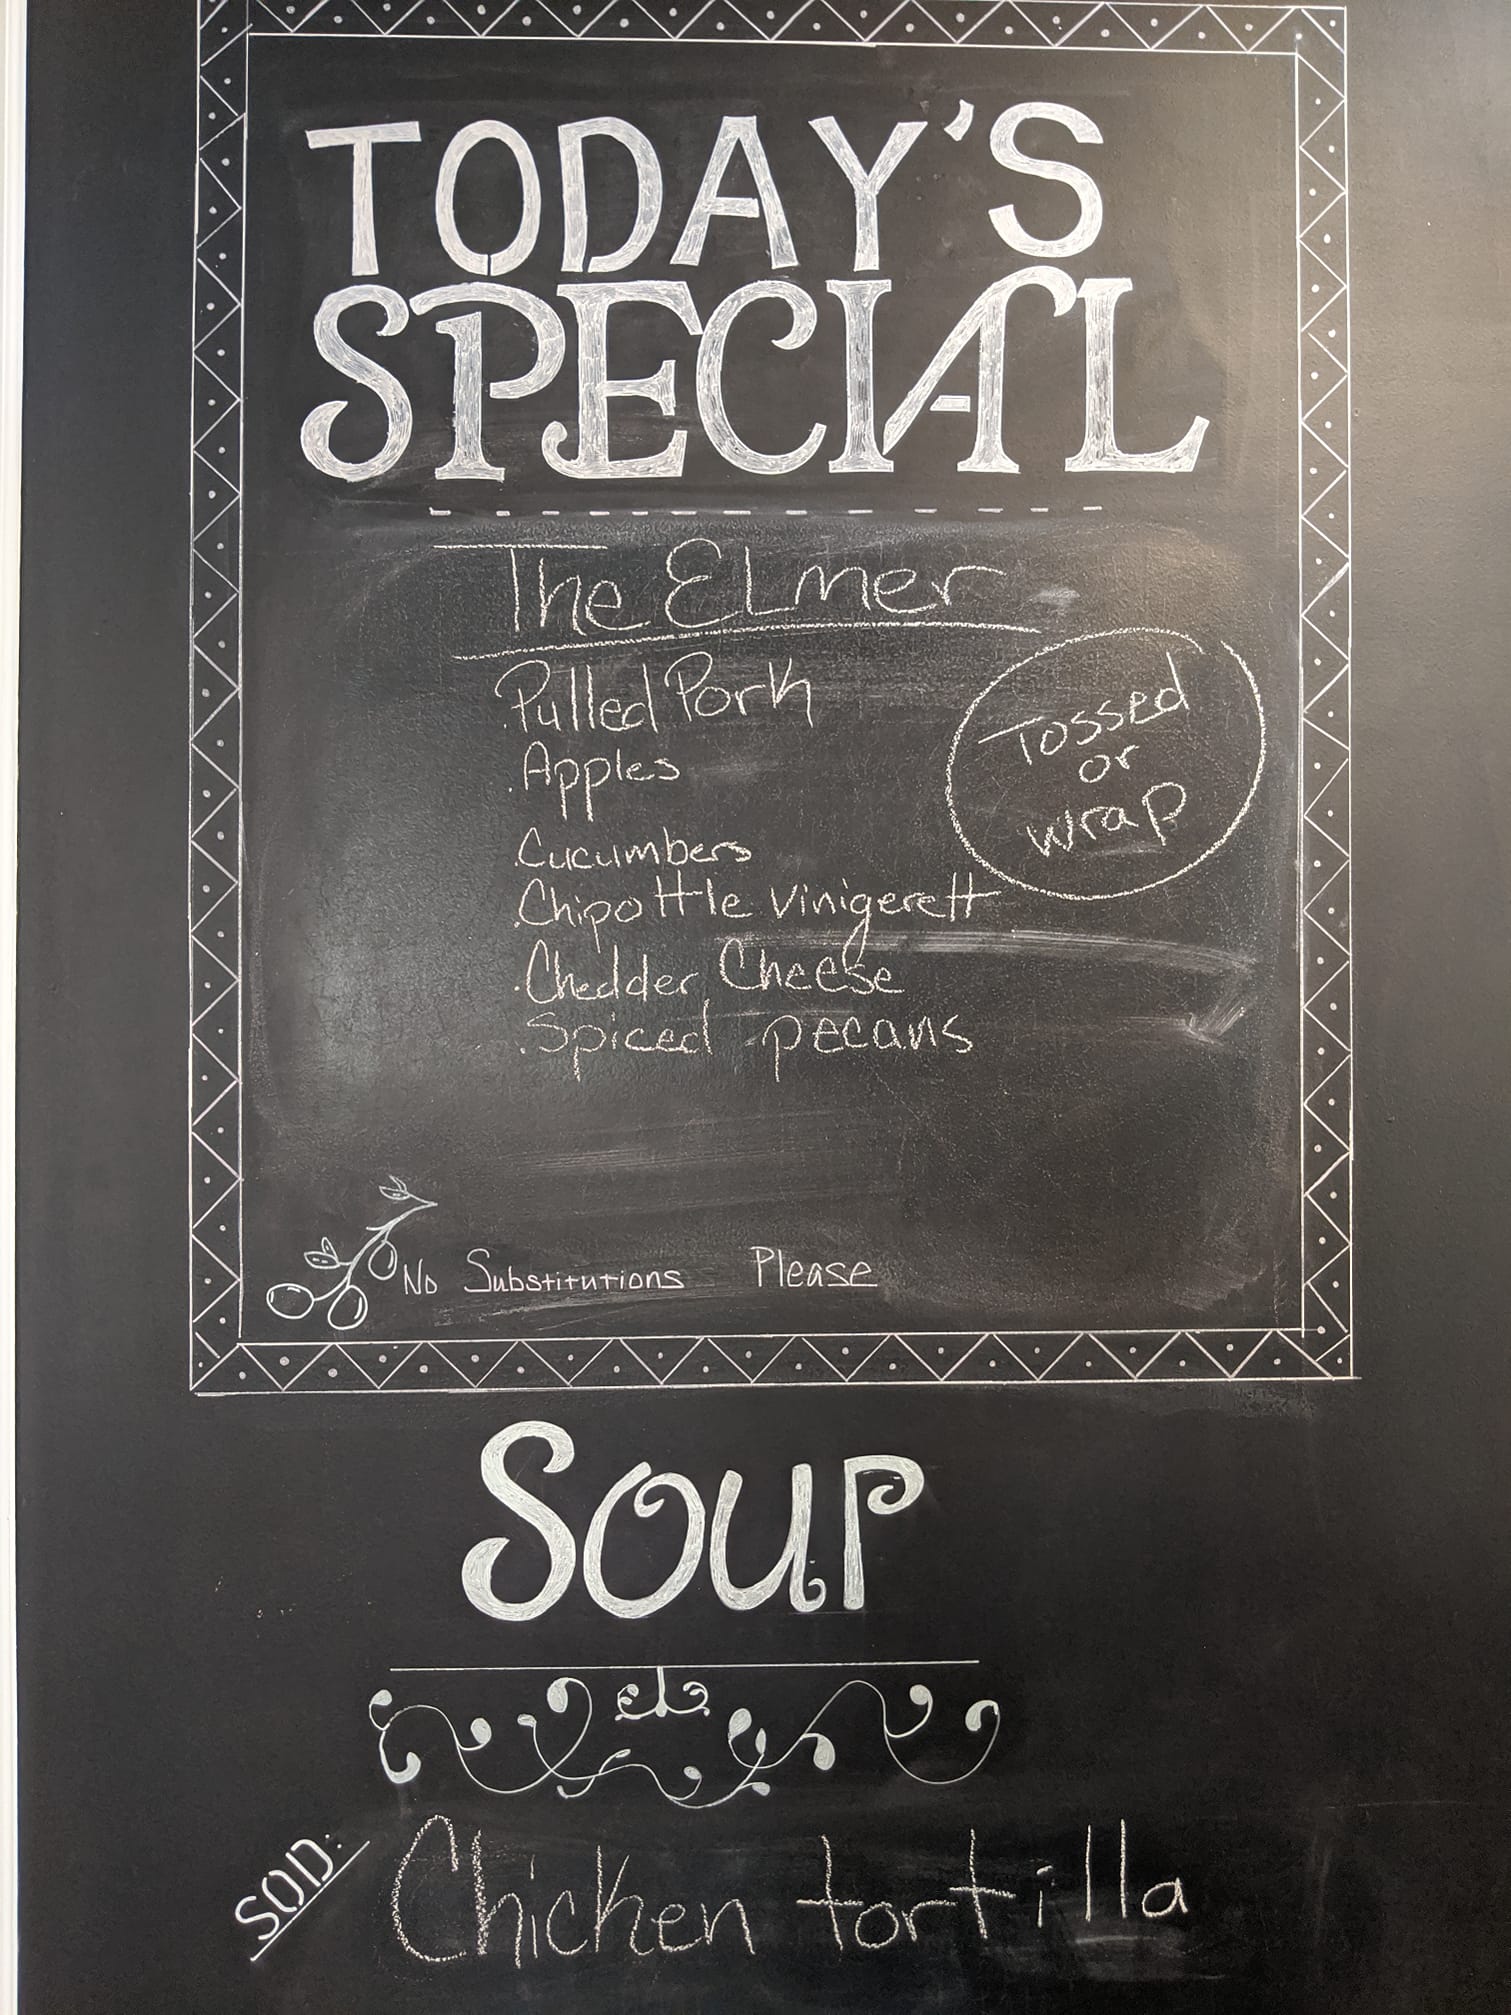 TODAY'S
SPECIAL
The ELmer
Pulled Pork
Apples
Cucumbers
Chipottle vinigerett
Chedder Cheese
Spiced pecans
Tossed
or
wrap
No Substitutions Please
Soup
SOD:
Chicken tortilla